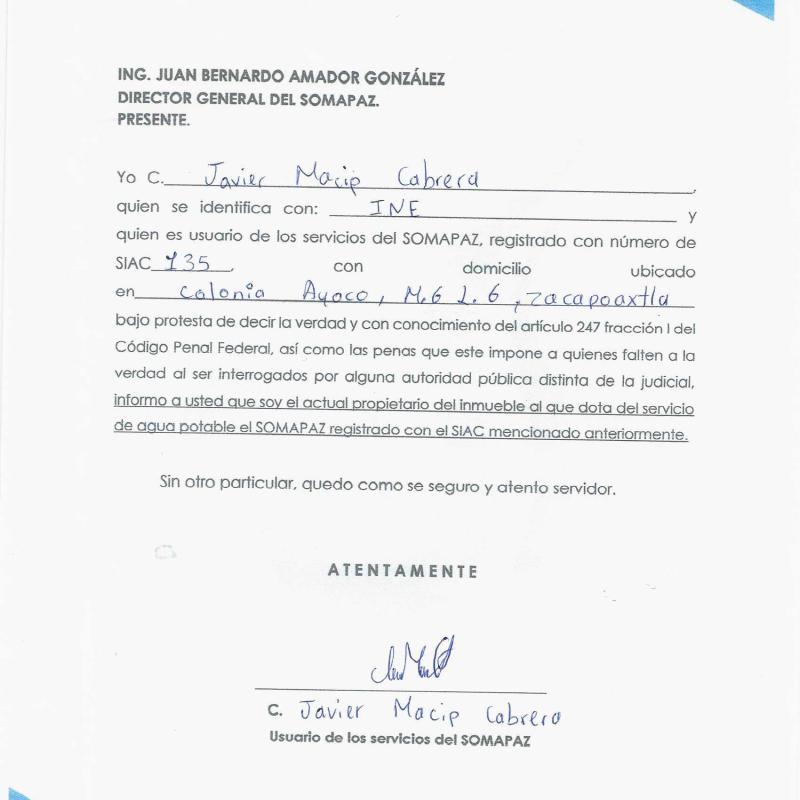 ING. JUAN BERNARDO AMADOR GONZÁLEZ
DIRECTOR GENERAL DEL SOMAPAZ.
PRESENTE.
Yo C. Javier Macip Cabrera,
quien se identifica con: INE y
quien es usuario de los servicios del SOMAPAZ, registrado con número de
SIAC 135, con domicilio ubicado
en Colonia Ayoco, M.6 L.6, Zacapoaxtla
bajo protesta de decir la verdad y con conocimiento del artículo 247 fracción I del
Código Penal Federal, así como las penas que este impone a quienes falten a la
verdad al ser interrogados por alguna autoridad pública distinta de la judicial,
informo a usted que soy el actual propietario del inmueble al que dota del servicio
de agua potable el SOMAPAZ registrado con el SIAC mencionado anteriormente.
Sin otro particular, quedo como se seguro y atento servidor.
ATENTAMENTE
C. Javier Macip Cabrera
Usuario de los servicios del SOMAPAZ